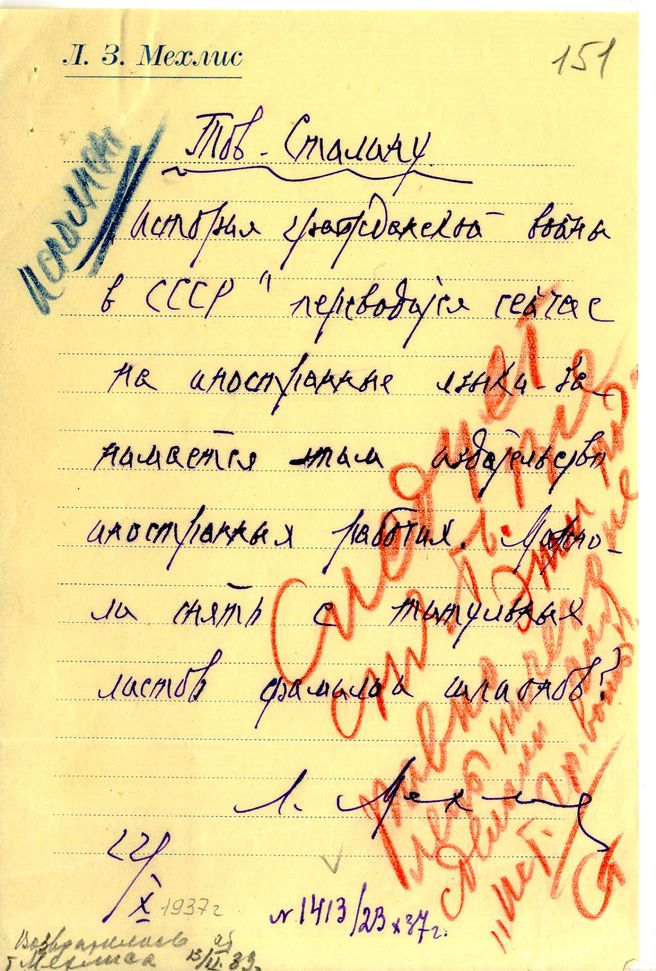 Л. З. Мехлис
151
Исполнен
Тов. Сталину.
„История гражданской войны
в СССР" переводится сейчас
на иностранные языки – за-
нимается этим издательство
иностранных рабочих. Можно-
ли снять с титульных
листов фамилии шпионов?
Л. Мехлис
22/X 1937 г
N 1413/23 X 37 г.
Следует
снять. Уже
давно
сделали
„Ист. гр. войны
Ст
Возвратилось от
т Мехлиса